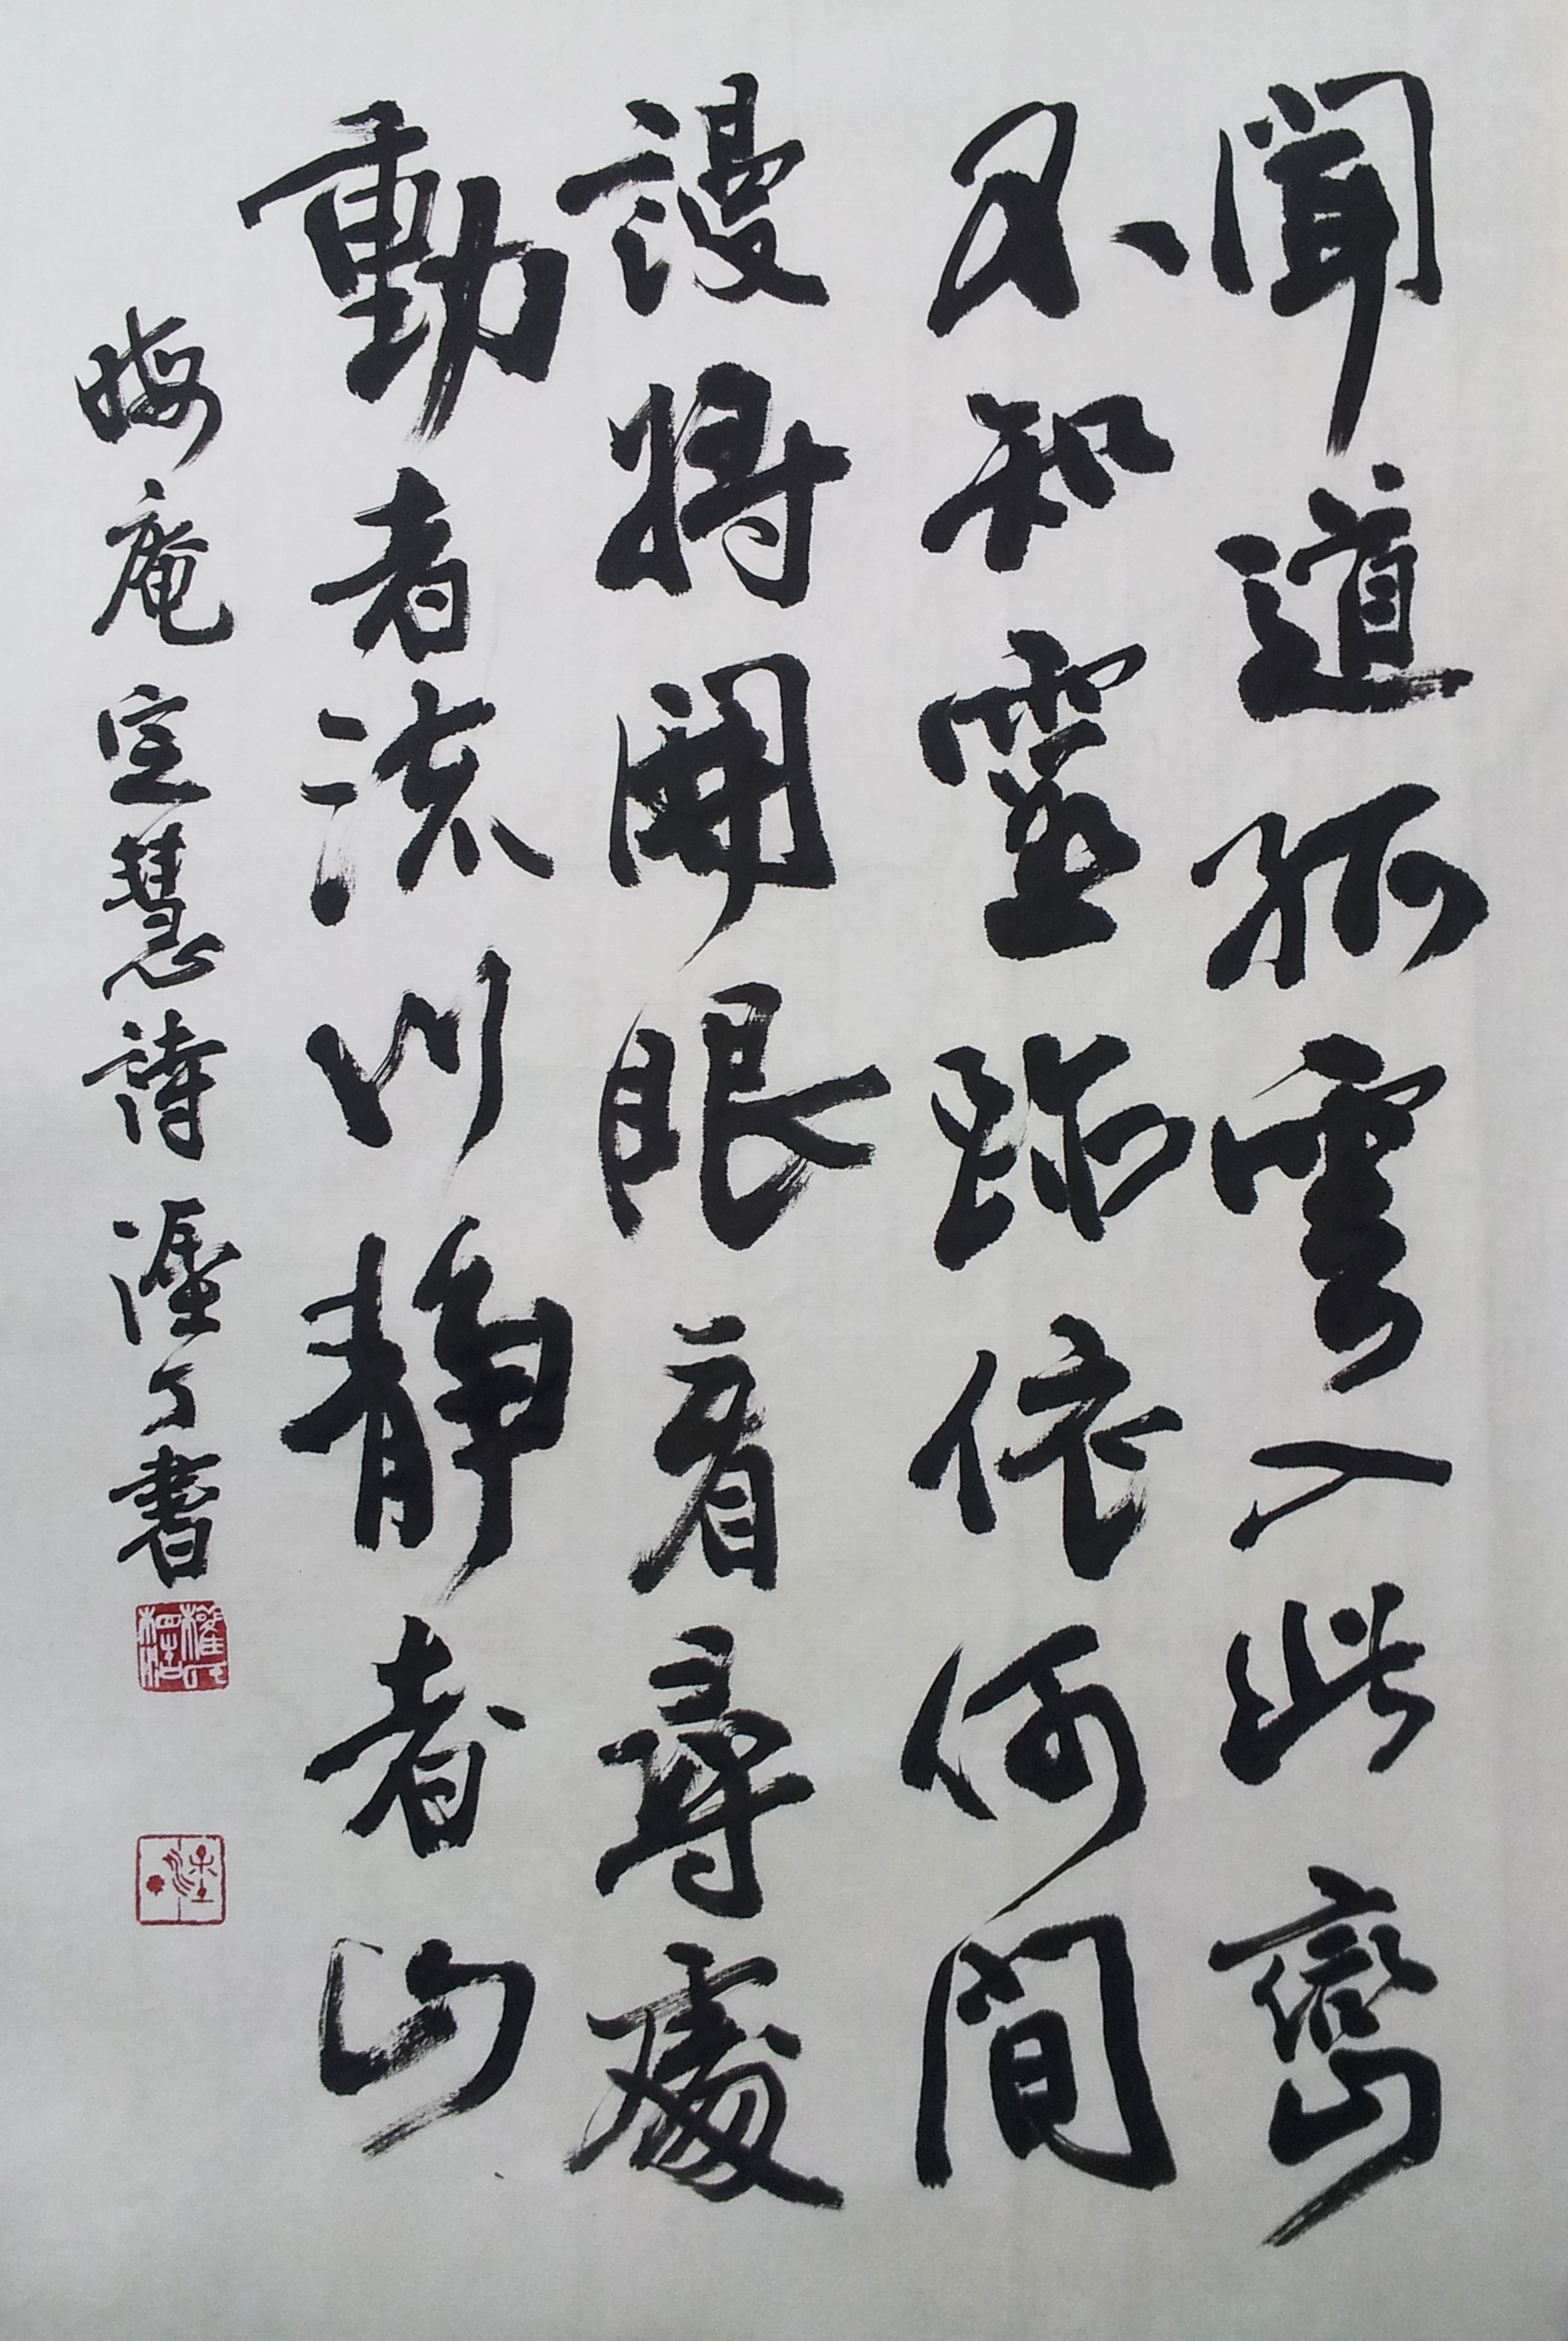 聞道孤雲入此巒
不知靈跡依何間
謾將開眼看尋處
動者流川靜者山
晦庵定慧詩 丁書